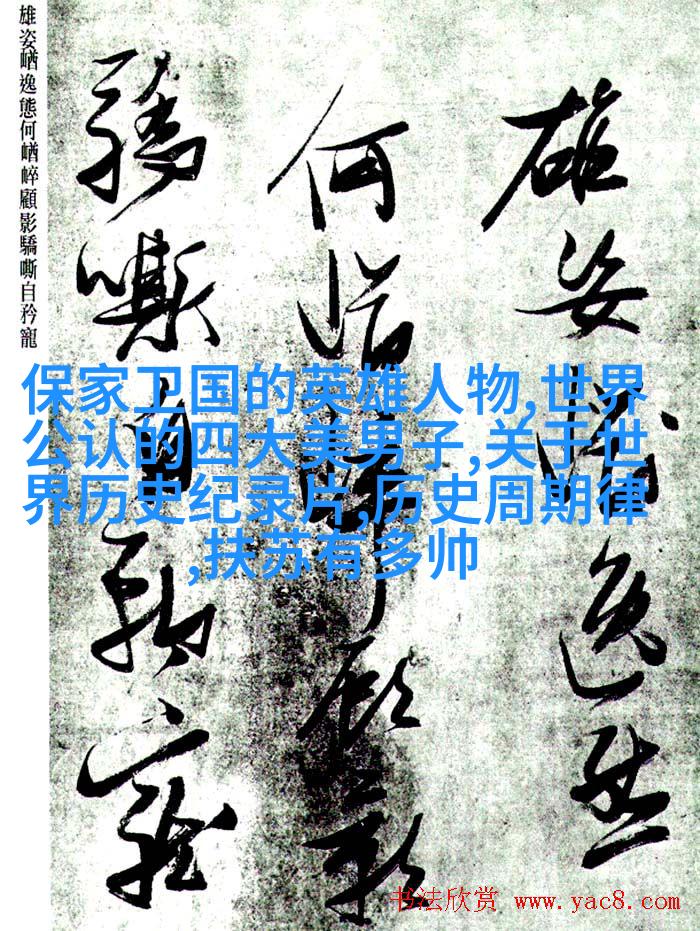 雄姿崷逸態何崷崪顧影驕嘶自矜寵
雄姿逸態
何崷崪顧影
驕嘶自矜寵
保家卫国的英雄人物,世界
公认的四大美男子,关于世
界历史纪录片,历史周期律
,扶苏有多帅
书法欣赏 www.yac8.com